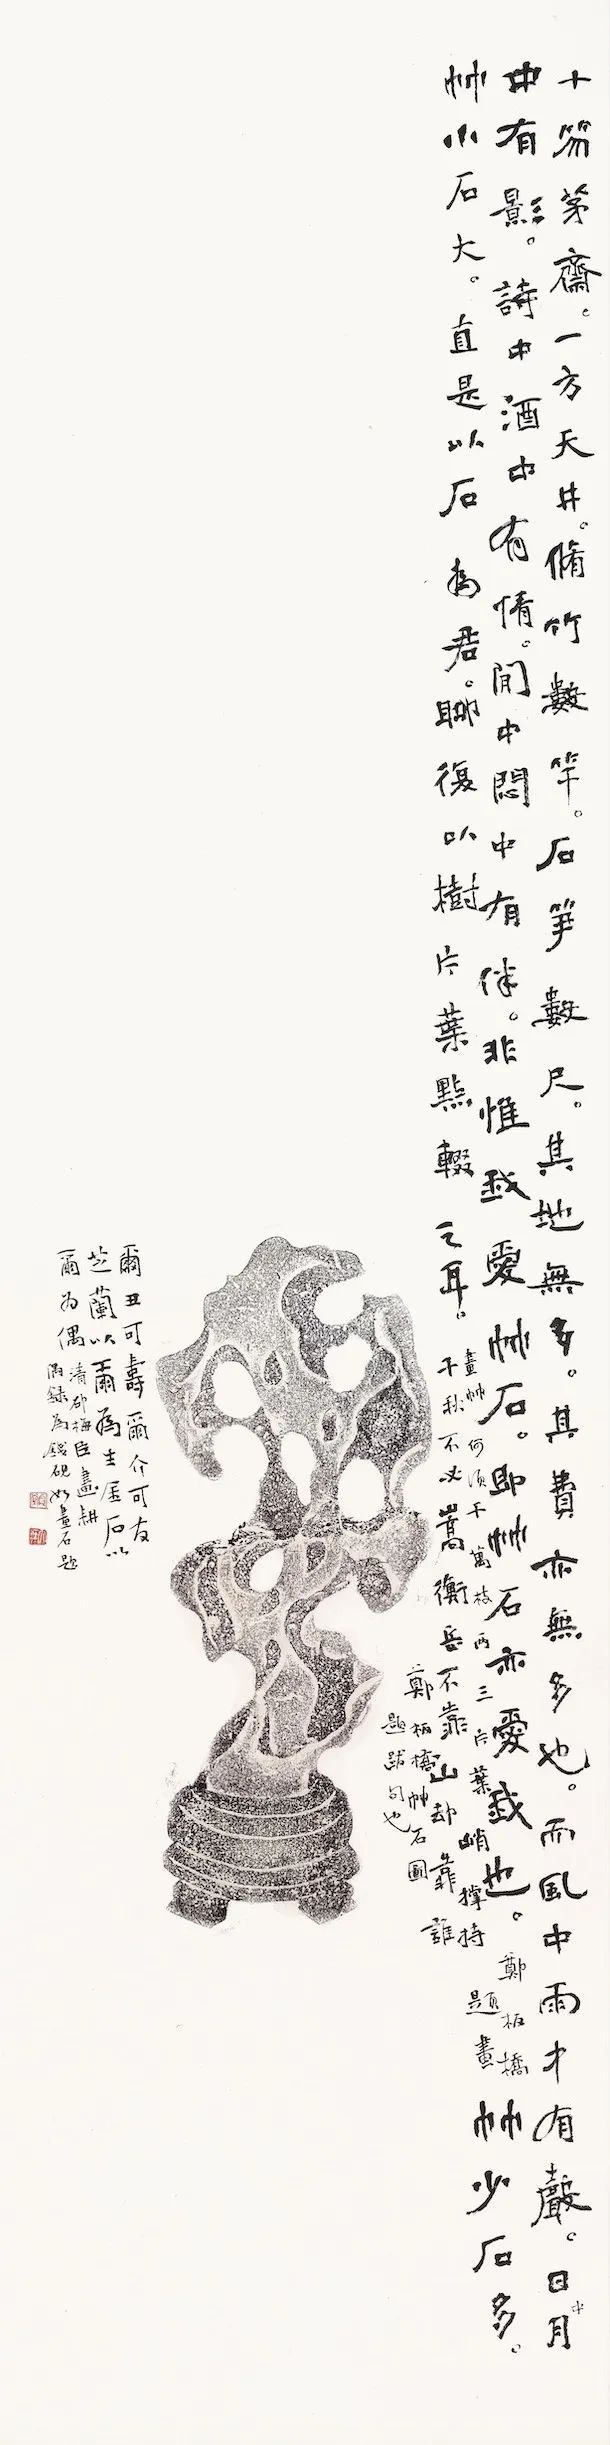 十笏茅齋。一方天井。脩竹數竿。石笋數尺。其地無多。其費亦無多也。而風中雨中有聲。日中月
中有影。詩中酒中有情。閒中悶中有伴。非惟我愛竹石。即竹石亦愛我也。
鄭板橋
題畫
竹少石多。
竹小石大。直是以石為君。聊復以樹片葉點輟之耳。
畫竹何須千萬枝兩三片葉峭撐持
千秋不必嵩衡岳不靠山却靠誰
鄭板橋竹石圖
題跋句也
爾丑可壽爾介可友
芝蘭以爾為生石以
爾為偶
清邵梅臣畫耕
偶錄為錢硯如畫石題